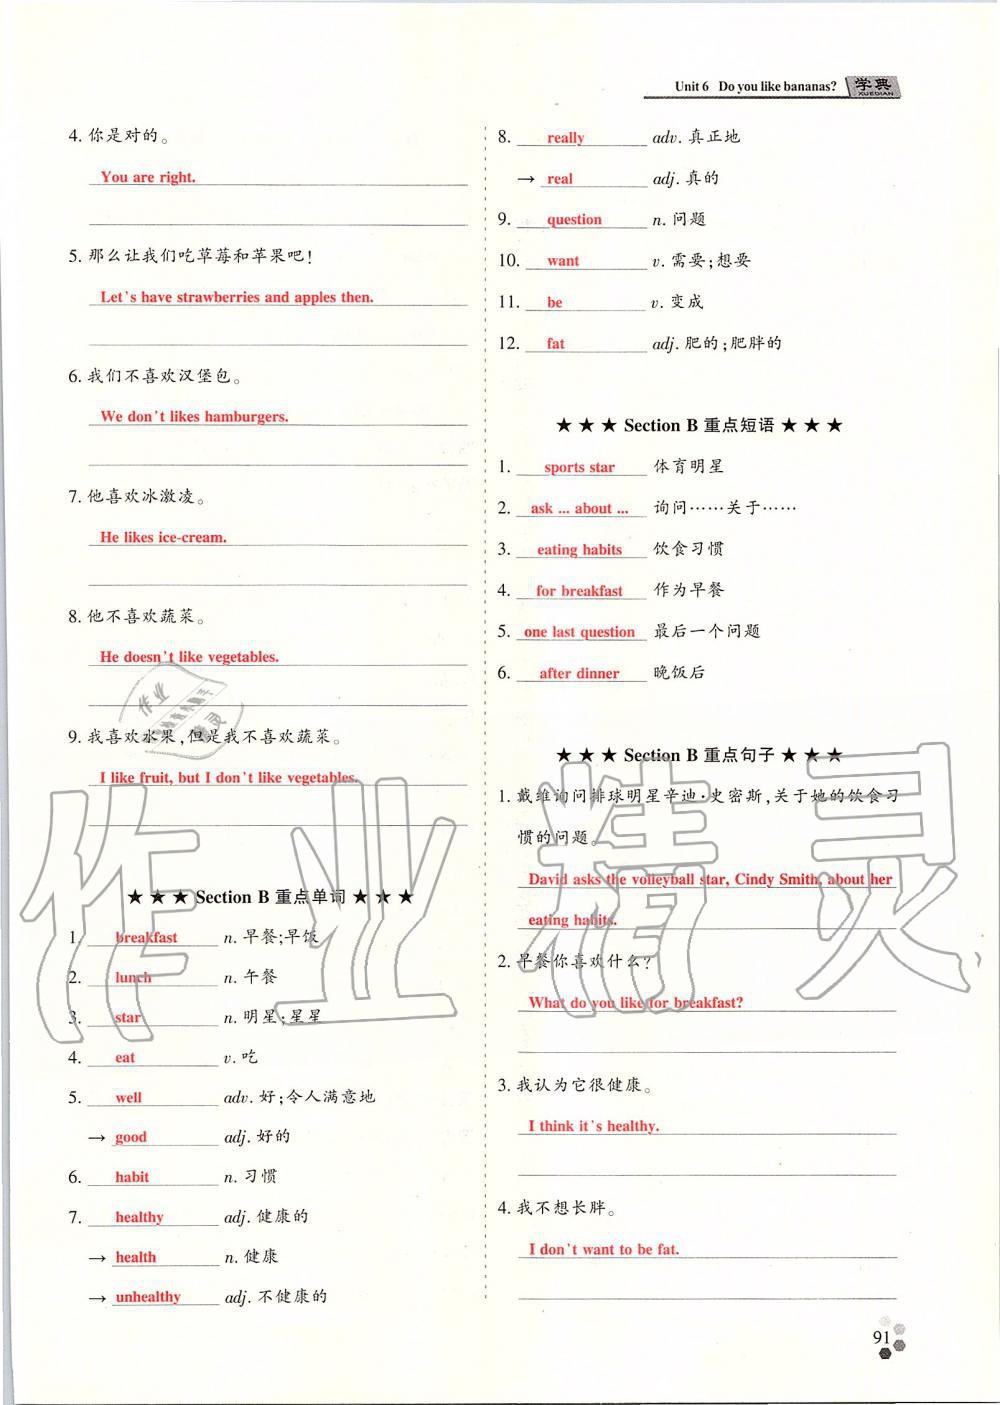 Unit 6 Do you like bananas? 学典 XUEDIAN
4. 你是对的。
You are right.
5. 那么让我们吃草莓和苹果吧!
Let's have strawberries and apples then.
6. 我们不喜欢汉堡包。
We don't likes hamburgers.
7. 他喜欢冰激凌。
He likes ice-cream.
8. 他不喜欢蔬菜。
He doesn't like vegetables.
9. 我喜欢水果,但是我不喜欢蔬菜。
I like fruit, but I don't like vegetables.
★ ★ ★ Section B 重点单词 ★ ★ ★
1. breakfast n. 早餐;早饭
2. lunch n. 午餐
3. star n. 明星;星星
4. eat v. 吃
5. well adv. 好;令人满意地
→ good adj. 好的
6. habit n. 习惯
7. healthy adj. 健康的
→ health n. 健康
→ unhealthy adj. 不健康的
8. really adv. 真正地
→ real adj. 真的
9. question n. 问题
10. want v. 需要;想要
11. be v. 变成
12. fat adj. 肥的;肥胖的
★ ★ ★ Section B 重点短语 ★ ★ ★
1. sports star 体育明星
2. ask ... about ... 询问……关于……
3. eating habits 饮食习惯
4. for breakfast 作为早餐
5. one last question 最后一个问题
6. after dinner 晚饭后
★ ★ ★ Section B 重点句子 ★ ★ ★
1. 戴维询问排球明星辛迪·史密斯,关于她的饮食习
惯的问题。
David asks the volleyball star, Cindy Smith, about her
eating habits.
2. 早餐你喜欢什么?
What do you like for breakfast?
3. 我认为它很健康。
I think it's healthy.
4. 我不想长胖。
I don't want to be fat.
91
作业精灵